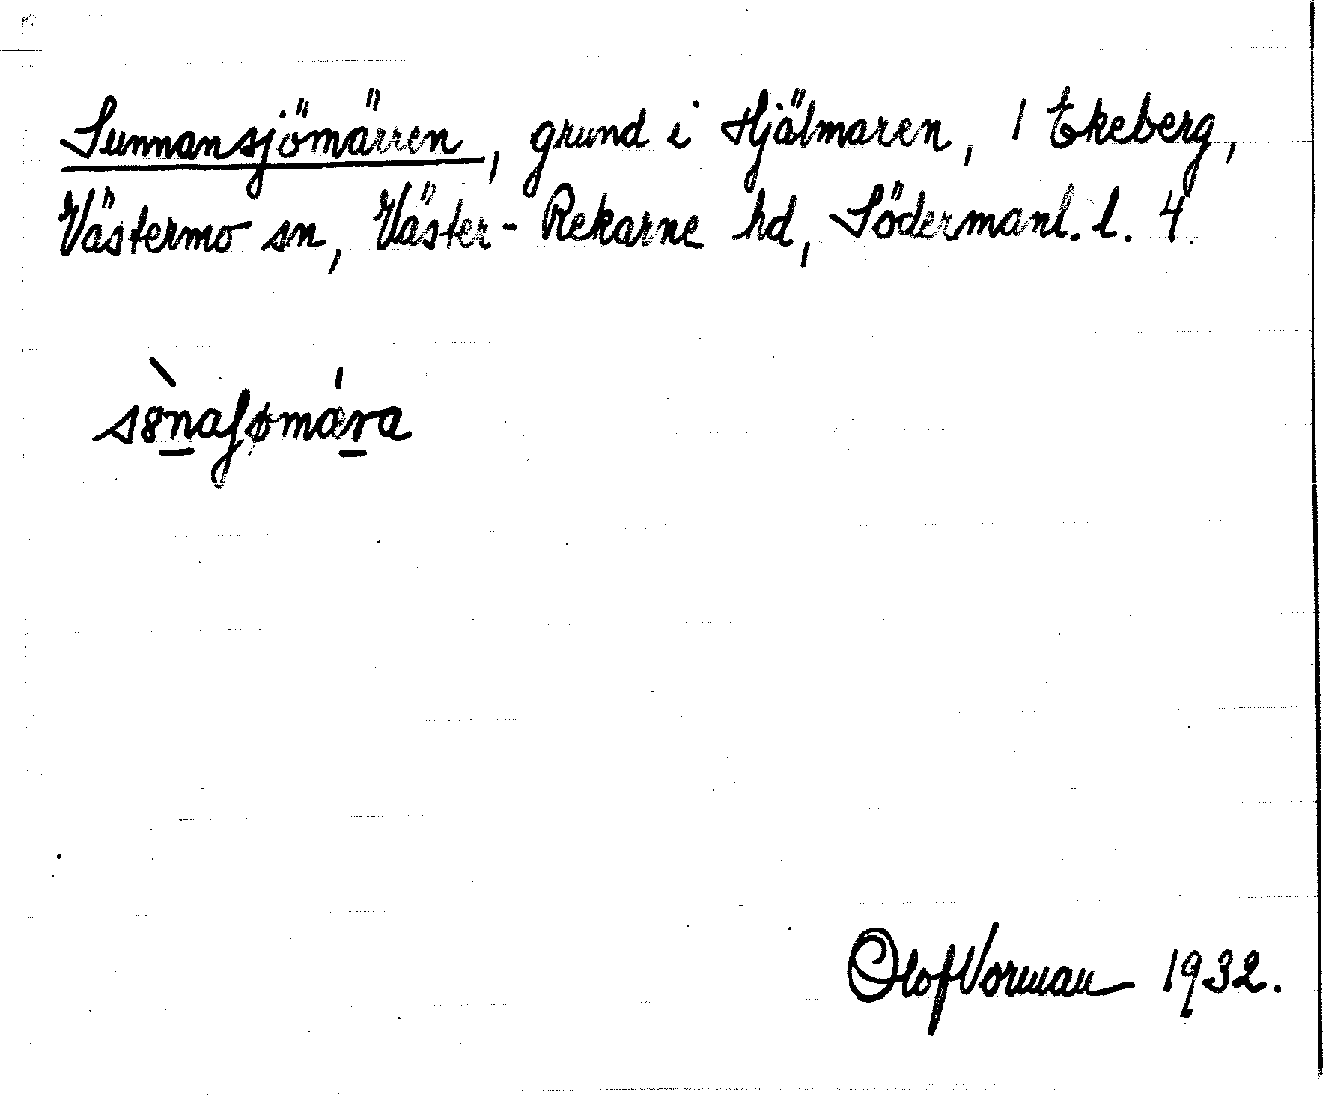 Sunnansjömärren, grund i Hjälmaren, / Ekeberg,
Västermo sn, Väster-Rekarne hd, Södermanl. l. 4
Olof Vorman 1932.